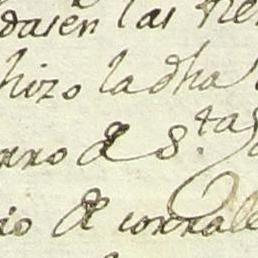 dasen las
hizo la dha
rro de S.tas
rio de corrale